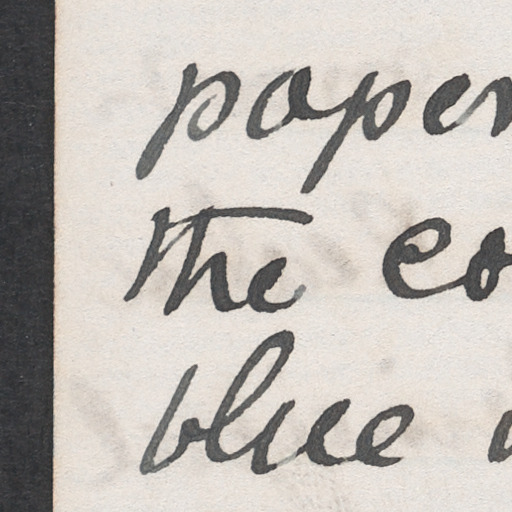 paper
the co
blue